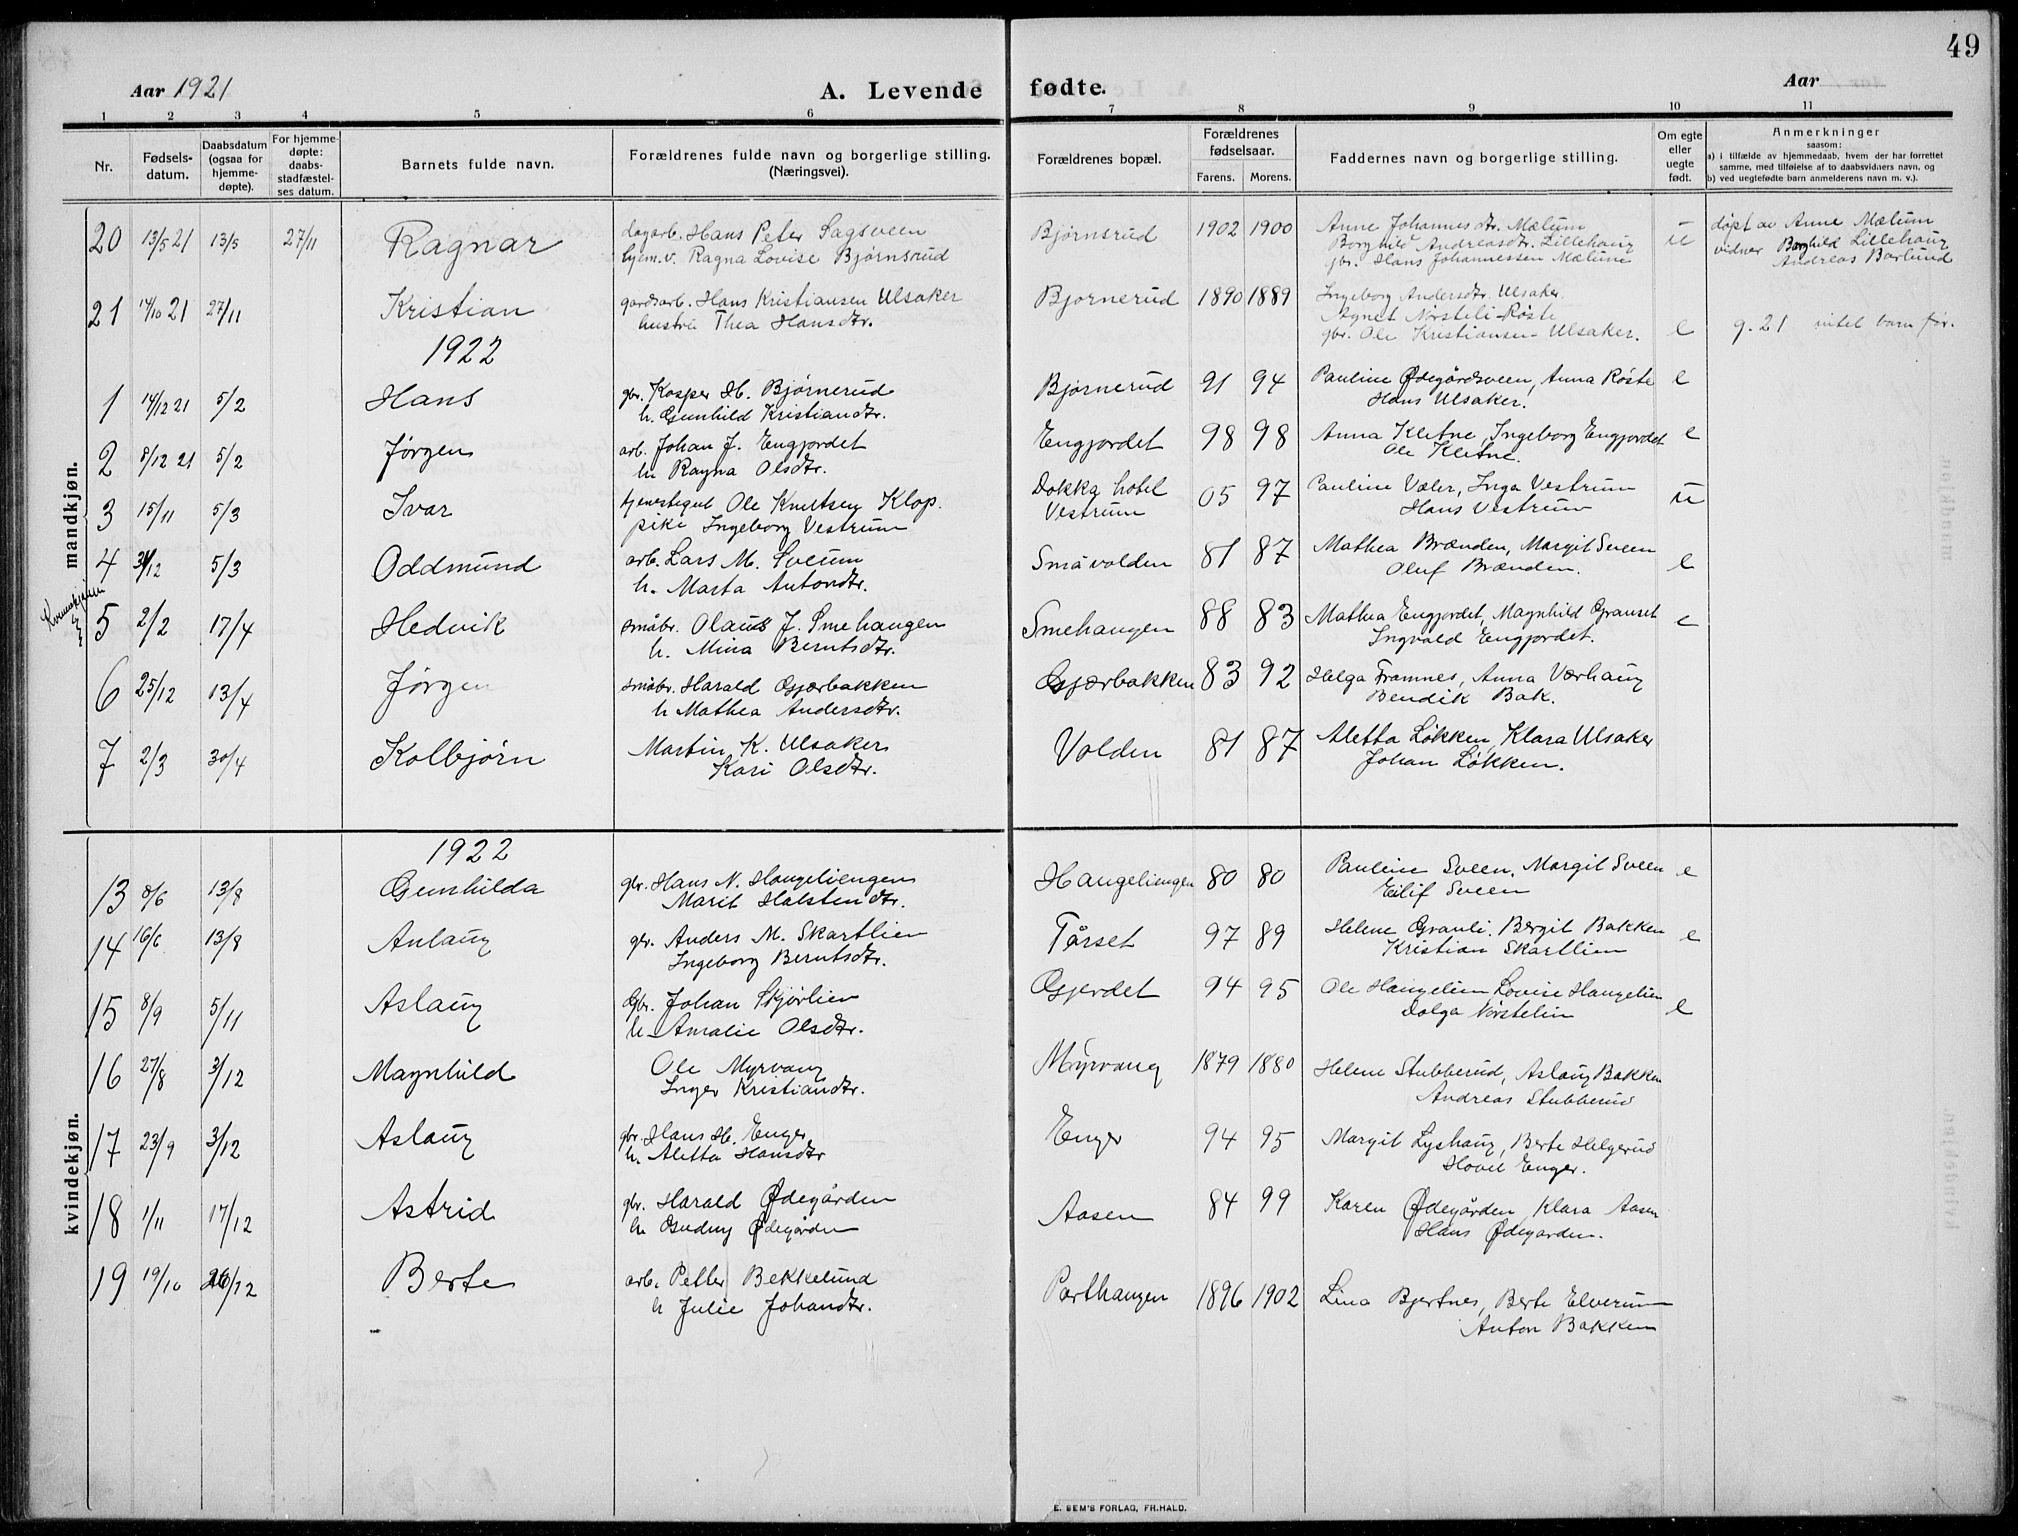 49
Aar 1921 A. Levende fødte. Aar
1 2 3 4 5 6 7 8 9 10 11
Nr. Fødsels-datum. Daabsdatum (ogsaa for hjemme-døpte). For hjemme-døpte: daabs-stadfæstel-ses datum. Barnets fulde navn. Forældrenes fulde navn og borgerlige stilling. (Næringsvei). Forældrenes bopæl. Forældrenes fødselsaar. Farens. Morens. Faddernes navn og borgerlige stilling. Om egte eller uegte født. Anmerkninger saasom: a) i tilfælde av hjemmedaab, hvem der har forrettet samme, med tilføielse af to daabsvidners navn, og b) ved uegtefødte barn anmelderens navn m. v.).
mandkjøn.
20 13/5 21 13/5 27/11 Ragnar dagarb. Hans Peter Sagsveen Bjørnsrud 1902 1900 Anne Johannesdtr. Mælum u døpt av Anne Mælum
hjem.v. Ragna Lovise Bjørnsrud Borghild Andreasdtr. Lillehaug vidner Borghild Lillehaug
gbr. Hans Johannessen Mælum Andreas Barlund
21 14/10 21 27/11 Kristian gardsarb. Hans Kristiansen Ulsaker Bjørnerud 1890 1889 Ingeborg Andersdtr. Ulsaker
hustru Thea Hansdtr. Agnet Nørsteli-Røste
gbr. Ole Kristiansen Ulsaker. e g. 21 intet barn før.
1922
1 14/12 21 5/2 Hans gbr. Kasper H. Bjørnerud Bjørnerud 91 94 Pauline Ødegårdsveen, Anna Røste e
h. Gunhild Kristiandtr. Hans Ulsaker.
2 8/12 21 5/2 Jørgen arb. Johan J. Engjordet Engjordet 98 98 Anna Kletne, Ingeborg Engjordet e
h. Ragna Olsdtr. Ole Kletne.
3 15/11 5/3 Ivar tjenestegut Ole Knutsen Klop. Dokka hotel 05 97 Pauline Væler, Inga Vestrum u
pike Ingeborg Vestrum Vestrum Hans Vestrum
4 31/12 5/3 Oddmund arb. Lars M. Sveum Småvolden 81 87 Mathea Brænden, Margit Sveen e
h. Marta Antondtr. Oluf Brænden.
5 2/2 17/4 Hedvik småbr. Olaus J. Smehaugen Smehaugen 88 83 Mathea Engjordet, Magnhild Granset e
h. Mina Berntsdtr. Ingvald Engjordet.
6 25/12 13/4 Jørgen småbr. Harald Gjærbakken Gjærbakken 83 92 Helga Framnes, Anna Værhaug
h Mathea Andersdtr. Bendik Bak.
7 2/3 30/4 Kolbjørn Martin K. Ulsaker Volden 81 87 Aletta Løkken, Klara Ulsaker
Kari Olsdtr. Johan Løkken.
kvindekjøn.
1922
13 8/6 13/8 Gunhilda gbr. Hans N. Haugeliengen Haugeliengen 80 80 Pauline Sveen, Margit Sveen e
Marit Halstendtr. Eilif Sveen
14 16/6 13/8 Anlaug gbr. Anders M. Skartlien Tårset 97 89 Helene Granli, Bergit Bakken e
Ingeborg Berntsdtr. Kristian Skartlien
15 8/9 5/11 Aslaug Gbr. Johan Skjørlien Gjerdet 94 95 Ole Haugelien Lovise Haugelien e
h. Amalie Olsdtr. Dolga Nørstelien
16 27/8 3/12 Magnhild Ole Myrvang Myrvang 1879 1880 Helene Stubberud, Aslaug Bakken
Inger Kristiandtr. Andreas Stubberud
17 23/9 3/12 Aslaug gbr. Hans H. Enger Enger 94 95 Margit Lyshaug, Berte Helgerud
h. Aletta Hansdtr Hovel Enger.
18 1/11 17/12 Astrid gbr. Harald Ødegården Aasen 84 99 Karen Ødegården, Klara Aasen
h Gudny Ødegården Hans Ødegården.
19 19/10 26/12 Berte arb. Petter Bekkelund Parthaugen 1896 1902 Lina Bjertnes, Berte Elverum
h Julie Johandtr. Anton Bakken
E. SEM'S FORLAG, FR.HALD.